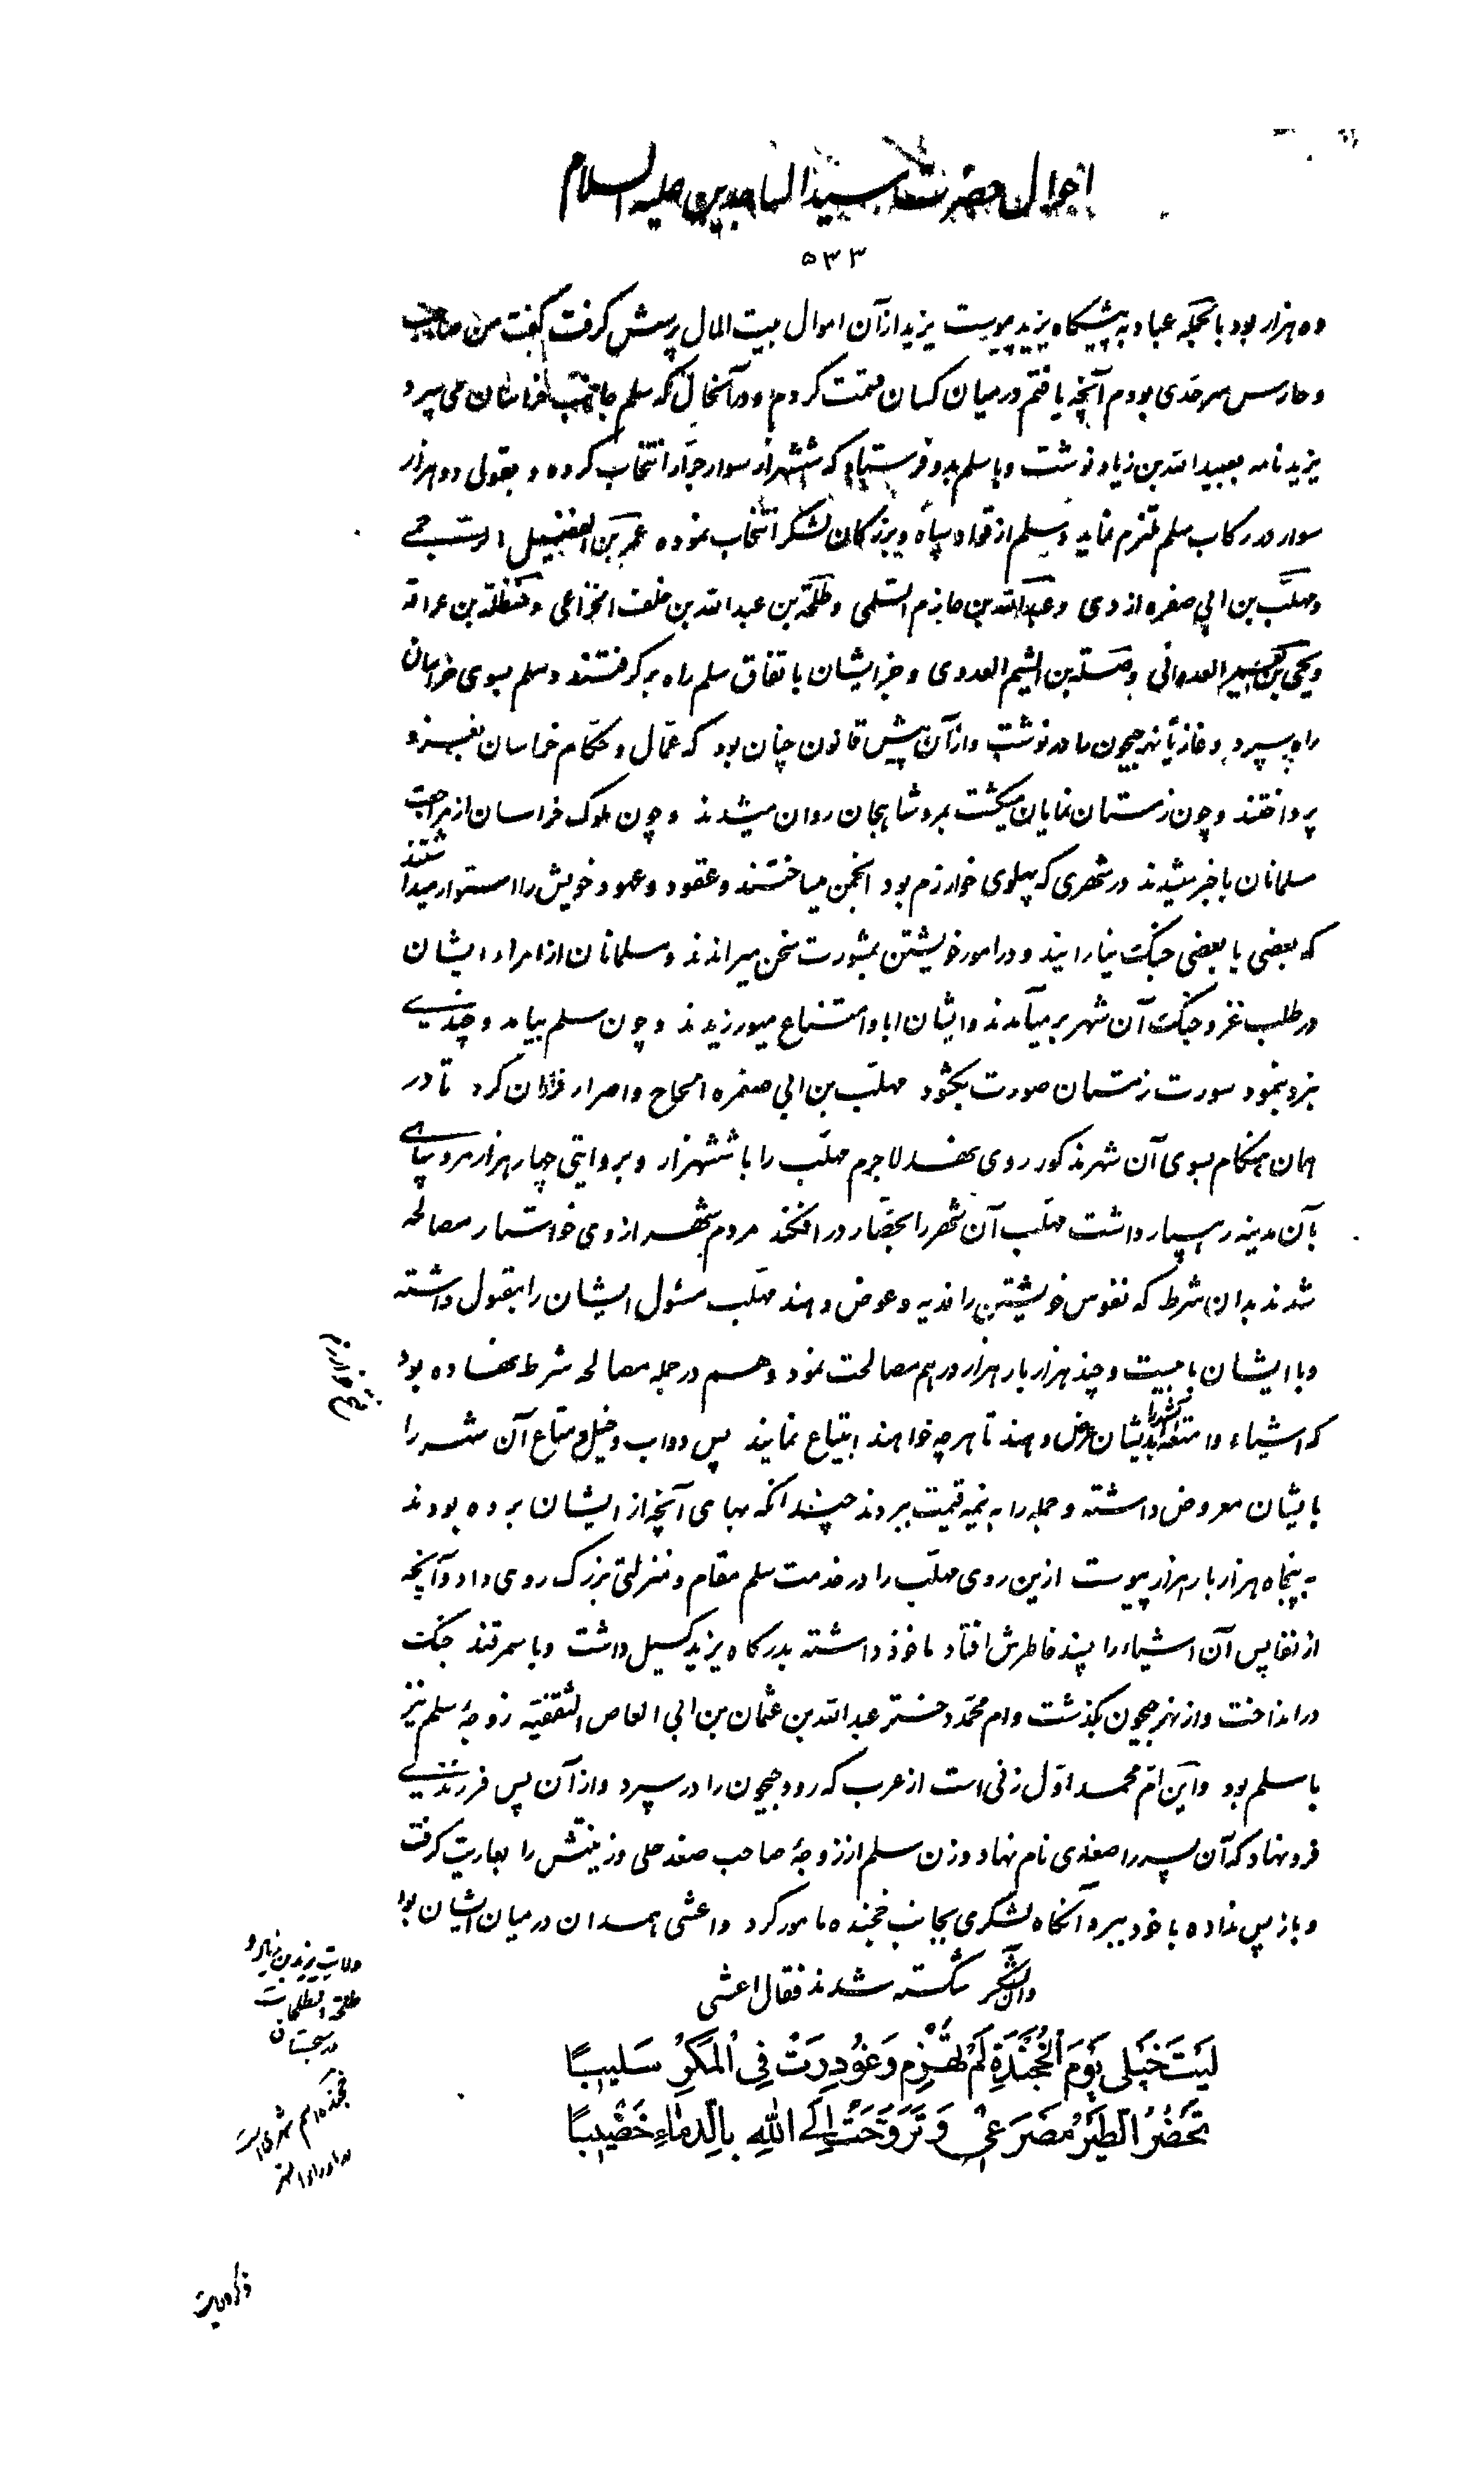 احوال حضرت سید الساجدین علیه السلام
۵۳۳
ده هزار بود بالجمله عباد به پیشگاه یزید پیوست یزید از آن اموال بیت المال پرسش گرفت گفت من صاحب
و حارس سرحدی بودم آنچه یافتم در میان کسان قسمت کردم و در آنحال که سلم بجانب خراسان می سپرد
یزید نامه بعبیدالله بن زیاد نوشت و با سلم بدو فرستاد که ششهزار سوار جرّار انتخاب کرده و بقولی دو هزار
سوار در رکاب سلم ملتزم نماید و سلم از قواد سپاه و بزرگان لشکر انتخاب نموده عمر بن الفضیل البرجمی
و مهلّب بن ابی صفره ازدی و عبدالله بن خازم السّلمی و طلحة بن عبدالله بن خلف الخزاعی و حنظلة بن عرادة
و یحیی بن العدوانی و صلة بن اشیم العدوی و جز ایشان باتفاق سلم راه برگرفتند و سلم بسوی خراسان
راه سپرد و غازیاً نهر جیحون را درنوشت و از آن پیش قانون چنان بود که عمّال و حکّام خراسان بغزو
پرداختند و چون زمستان نمایان میگشت بمرو شاهیجان روان میشدند و چون ملوک خراسان از مراجعت
مسلمانان باخبر میشدند در شهری که پهلوی خوارزم بود انجمن میساختند و عقود و عهود خویش را استوار میداشتند
که بعضی با بعضی جنگ نیارایند و در امور خویشتن بمشورت سخن میراندند و مسلمانان از امراء ایشان
در طلب غزو جنگ آن شهر برمیآمدند و ایشان ابا و امتناع میورزیدند و چون سلم بیامد و چندی
بزد بنمود سورت زمستان صورت بگشود مهلّب بن ابی صفره الحاح و اصرار فراوان کرد تا در
همان هنگام بسوی آن شهر مذکور روی نهند لاجرم مهلّب را با ششهزار و بروایتی چهار هزار مرد سپاهی
بآن مدینه رهسپار داشت مهلّب آن شهر را بحصار درافکند مردم شهر از وی خواستار مصالحه
شدند بدان شرط که نفوس خویشتن را فدیه و عوض دهند مهلّب مسئول ایشان را بقبول داشته
و با ایشان با بیست و چند هزار بار هزار درهم مصالحت نمود و هم در جمله مصالحه شرط نهاده بود
که اشیاء و امتعه آنشهر را بدیشان عرض دهند تا هر چه خواهند ابتیاع نمایند پس دواب و خیل و متاع آن شهر را
بایشان معروض داشته و جمله را به نیمه قیمت ببردند چندانکه بهای آنچه از ایشان برده بودند
به پنجاه هزار بار هزار پیوست ازین روی مهلّب را در خدمت سلم مقام و منزلتی بزرگ روی داد و آنچه
از نفایس آن اشیاء را پسند خاطرش افتاد ماخوذ داشته بدرگاه یزید گسیل داشت و با سمرقند جنگ
درانداخت و از نهر جیحون بگذشت و ام محمّد دختر عبدالله بن عثمان بن ابی العاص الثقفیّه زوجهٔ سلم نیز
با سلم بود و این امّ محمد اوّل زنی است از عرب که رود جیحون را درسپرد و از آن پس فرزندی
فرونهاد که آن پسر را صغدی نام نهاد و زن سلم از زوجهٔ صاحب صغد حلی و زینتش را بعاریت گرفت
و باز پس نداده با خود ببرد آنگاه لشکری بجانب خجنده مامور کرد و اعشی همدان در میان ایشان بود
و آن لشکر شکسته شدند فقال اعشی
لَیتَ خَیلی یَومَ الخُجَندَةِ لَم تُهزَم وَ غُودِرَت فِی المَکَرِّ سَلیبًا
تَحضُرُ الطَیرُ مَصرَعی وَ تَرَوَّحتُ اِلَی اللهِ بِالدِماءِ خَضیبًا
فتح خوارزم
ولایت یزید بن زیاد و
طلحة الطلحات
در سجستان
خجنده نام شهری است
در ماوراء النهر
ذکر ولایت